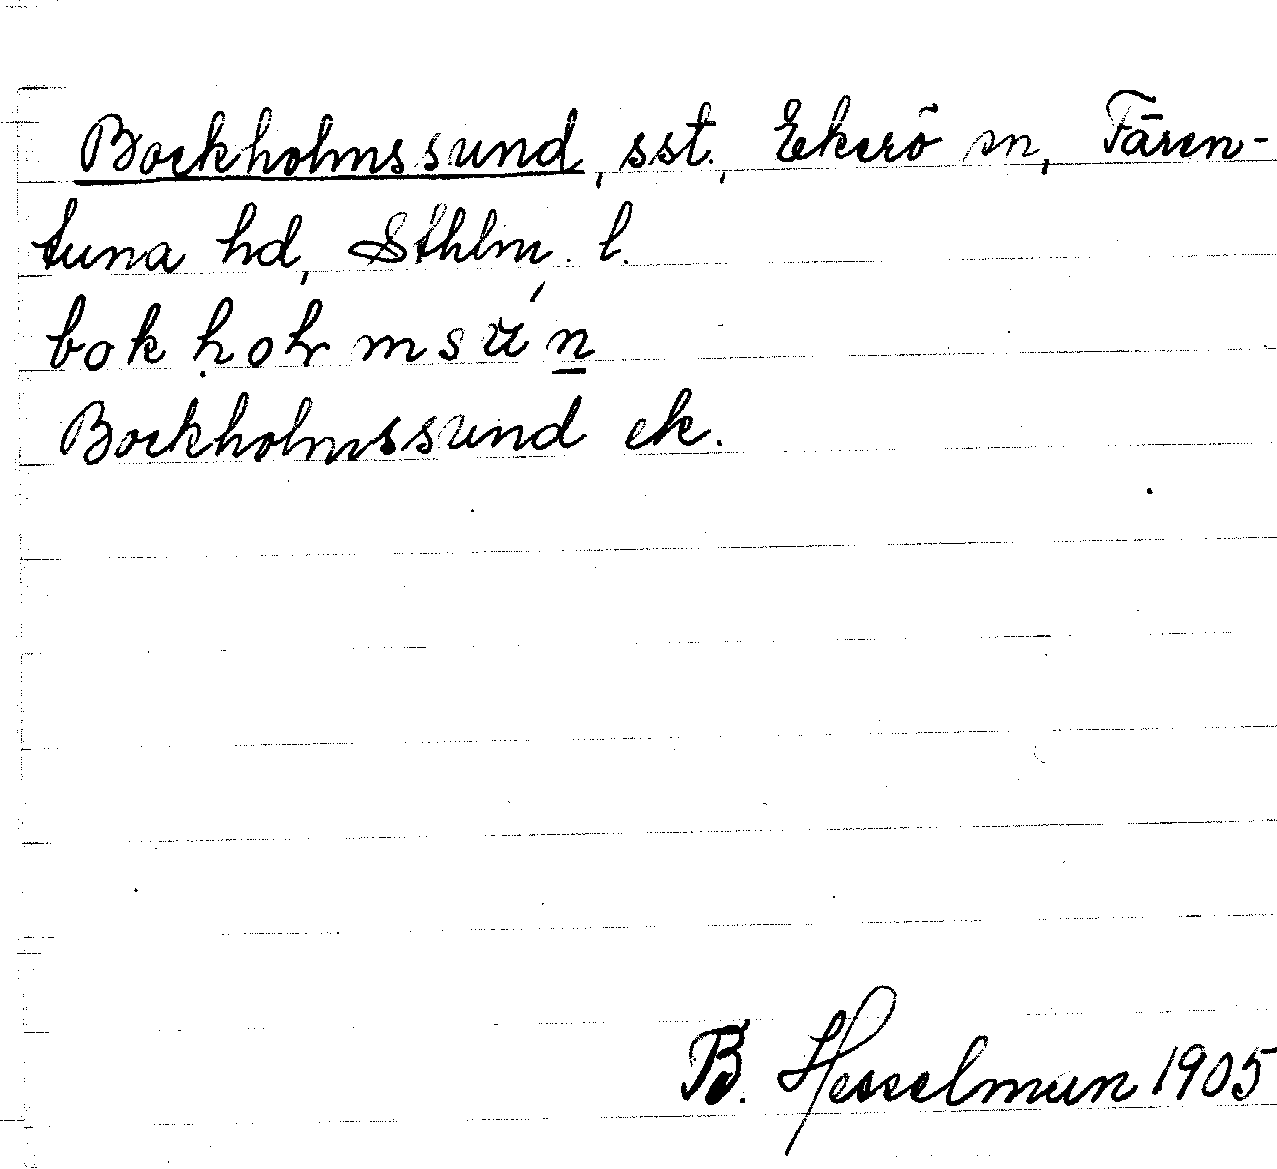 Bockholmssund, sst., Ekerö sn, Fären-
tuna hd, Sthlm. l.
bok ḥolmsú̈n̲
Bockholmssund ek.
B. Hesselman 1905